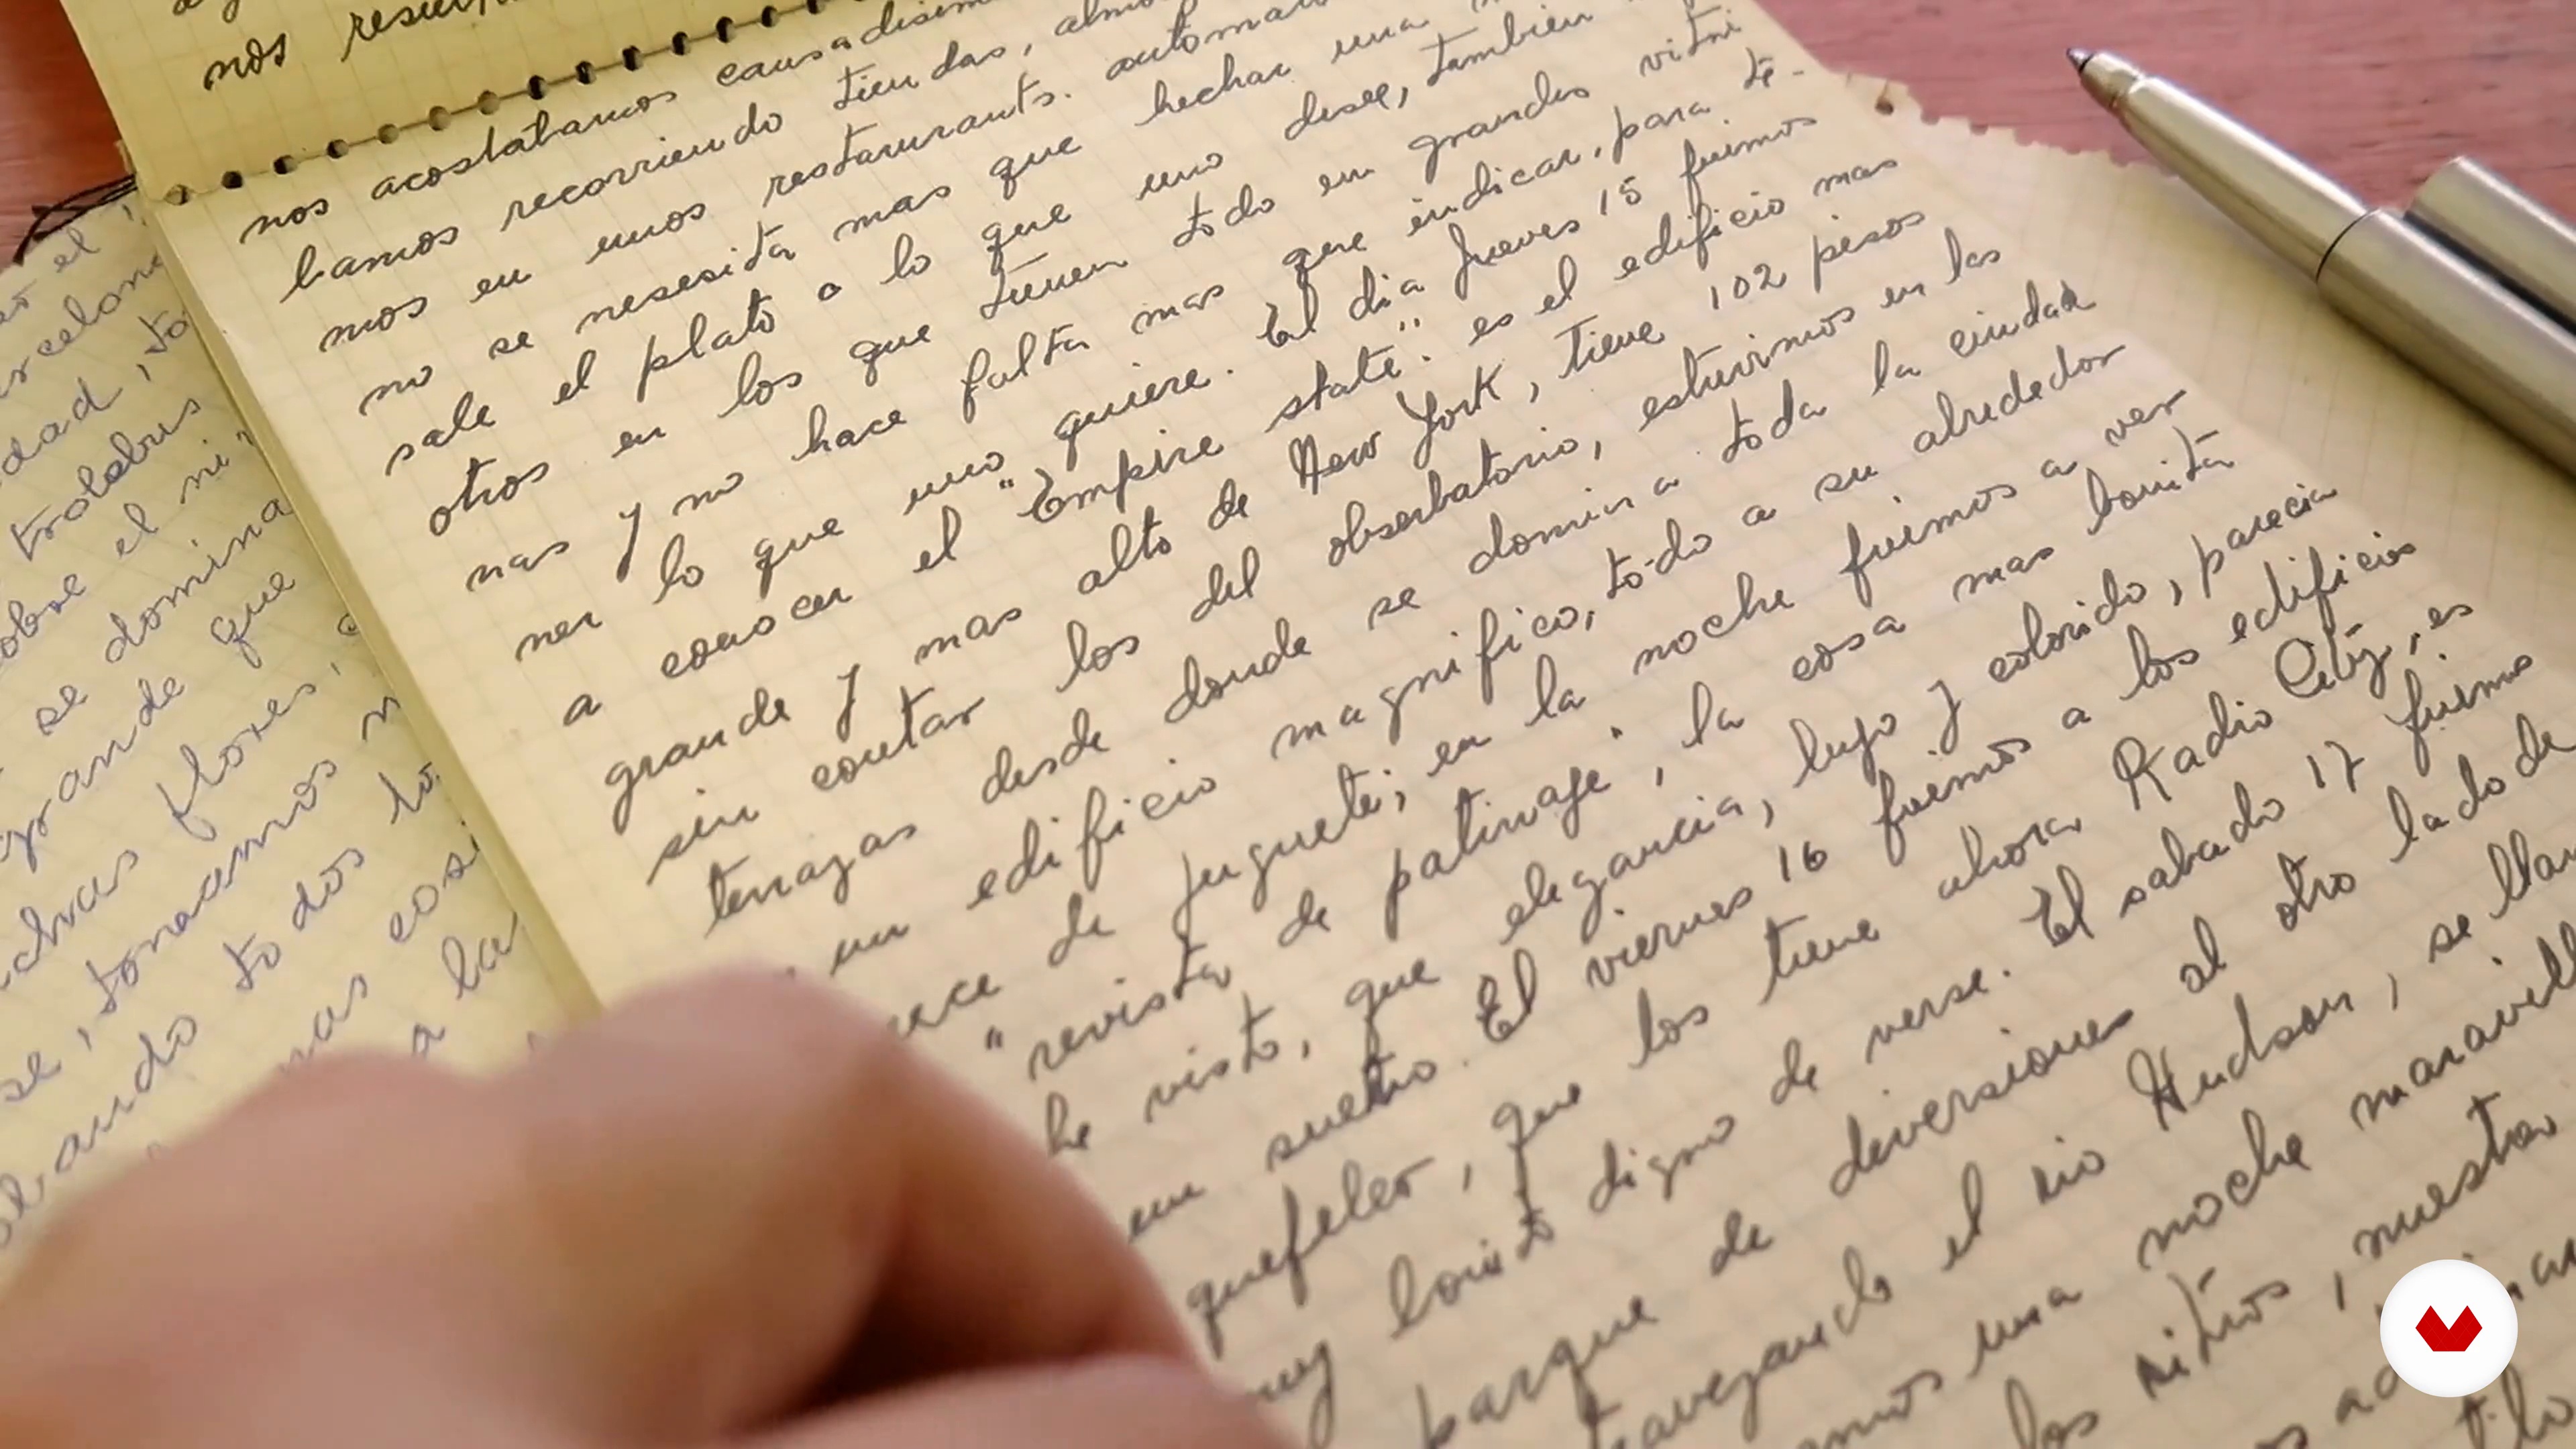 nos
nos acostabamos causadisim
bamos recorriendo tiendas, alm
mos en unos restaurants. automa
no se nesesita mas que hechar una
sale el plato a lo que uno desee, tambien
otros en los que tienen todo en grandes vitri
nas y no hace falta mas que indicar, para te-
ner lo que uno quiere. El dia jueves 15 fuimos
a conocer el "Empire state". es el edificio mas
grande y mas alto de New York, tiene 102 pisos
sin contar los del obserbatorio, estuvimos en las
terrazas desde donde se domina toda la ciudad
un edificio magnifico, todo a su alrededor
rece de juguete; en la noche fuimos a ver
"revista de patinaje", la cosa mas bonita
he visto, que elegancia, lujo y colorido, parecia
un sueño. El viernes 16 fuimos a los edificios
quefeler, que los tiene ahora Radio City, es
muy bonito digno de verse. El sabado 17 fuimos
parque de diversiones al otro lado de
navegando el rio Hudson, se llam
amos una noche maravill
los sitios, nuestra
el
rcelona
dad, to
trolebus
obre el ni
se domina
grande que
chas flores,
se, tomamos n
ando todos lo
nas cosi
a la